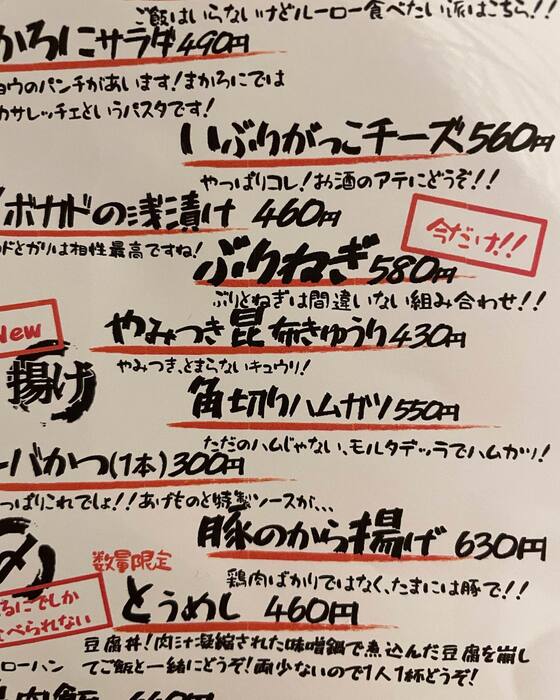 ご飯はいらないけどルーロー食べたい派はこちら!!
かろにサラダ490円
ョウのパンチがあいます!まかろにでは
カサレッチェというパスタです!
いぶりがっこチーズ560円
やっぱりコレ!お酒のアテにどうぞ!!
ボカドの浅漬け 460円
ドとガリは相性最高ですね!
今だけ!!
ぶりねぎ580円
ぶりとねぎは間違いない組み合わせ!!
New
やみつき昆布きゅうり430円
やみつき、とまらないキュウリ!
揚げ
角切りハムカツ550円
ただのハムじゃない、モルタデッラでハムカツ!
ーバかつ(1本)300円
っぱりこれでしょ!!あげものと特製ソースが、、、
豚のから揚げ 630円
鶏肉ばかりではなく、たまには豚で!!
〆
数量限定
とうめし 460円
るにでしか
べられない
豆腐丼!肉汁凝縮された味噌鍋で煮込んだ豆腐を崩し
てご飯と一緒にどうぞ!面少ないので1人1杯どうぞ!
ローハン